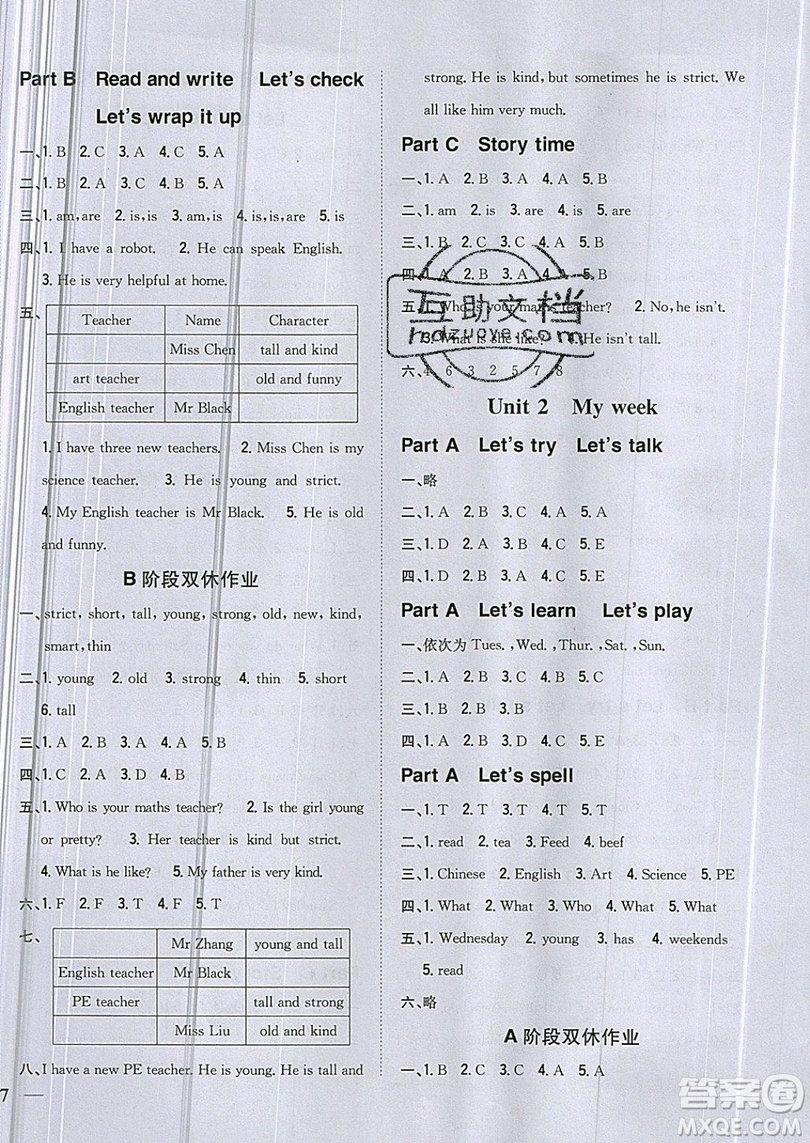 Part B Read and write Let's check
Let's wrap it up
一、1. B 2. C 3. A 4. C 5. A
二、1. B 2. A 3. C 4. A 5. A
三、1. am, are 2. is, is 3. is, are 4. are, is 5. is
四、1. I have a robot. 2. He can speak English.
3. He is very helpful at home.
五、
Teacher Name Character
Miss Chen tall and kind
art teacher old and funny
English teacher Mr Black
1. I have three new teachers. 2. Miss Chen is my
science teacher. 3. He is young and strict.
4. My English teacher is Mr Black. 5. He is old
and funny.
B 阶段双休作业
一、strict, short, tall, young, strong, old, new, kind,
smart, thin
二、1. young 2. old 3. strong 4. thin 5. short
6. tall
三、1. A 2. B 3. A 4. B 5. A
四、1. C 2. A 3. B 4. A 5. A
五、1. Who is your maths teacher? 2. Is the girl young
or pretty? 3. Her teacher is kind but strict.
4. What is he like? 5. My father is very kind.
六、1. F 2. F 3. T 4. F 5. T
七、
Mr Zhang young and tall
English teacher Mr Black
PE teacher tall and strong
Miss Liu old and kind
八、I have a new PE teacher. He is young. He is tall and
7
strong. He is kind, but sometimes he is strict. We
all like him very much.
Part C Story time
一、1. A 2. B 3. A 4. A 5. B
二、1. am 2. is 3. are 4. is 5. are
三、1. B 2. C 3. C 4. A 5. B
四、1. A 2. B 3. B 4. A 5. B
五、1. Who is your maths teacher? 2. No, he isn't.
3. What is she like? 4. He isn't tall.
六、4 6 3 2 5 7 8
互助文档
hdzuoye.com
Unit 2 My week
Part A Let's try Let's talk
一、略
二、1. A 2. B 3. C 4. A 5. A
三、1. D 2. A 3. B 4. C 5. E
四、1. D 2. A 3. B 4. C 5. E
Part A Let's learn Let's play
一、依次为 Tues. , Wed. , Thur. , Sat. , Sun.
二、1. A 2. B 3. C 4. B 5. B
三、1. C 2. B 3. A 4. B 5. C
四、1. C 2. B 3. A 4. B 5. C
Part A Let's spell
一、1. T 2. T 3. F 4. F 5. T
二、1. read 2. tea 3. Feed 4. beef
三、1. Chinese 2. English 3. Art 4. Science 5. PE
四、1. What 2. What 3. Who 4. What 5. What
五、1. Wednesday 2. young 3. has 4. weekends
5. read
六、略
A 阶段双休作业
一、1. C 2. B 3. B 4. A 5. A
答案圈
MXQE.COM